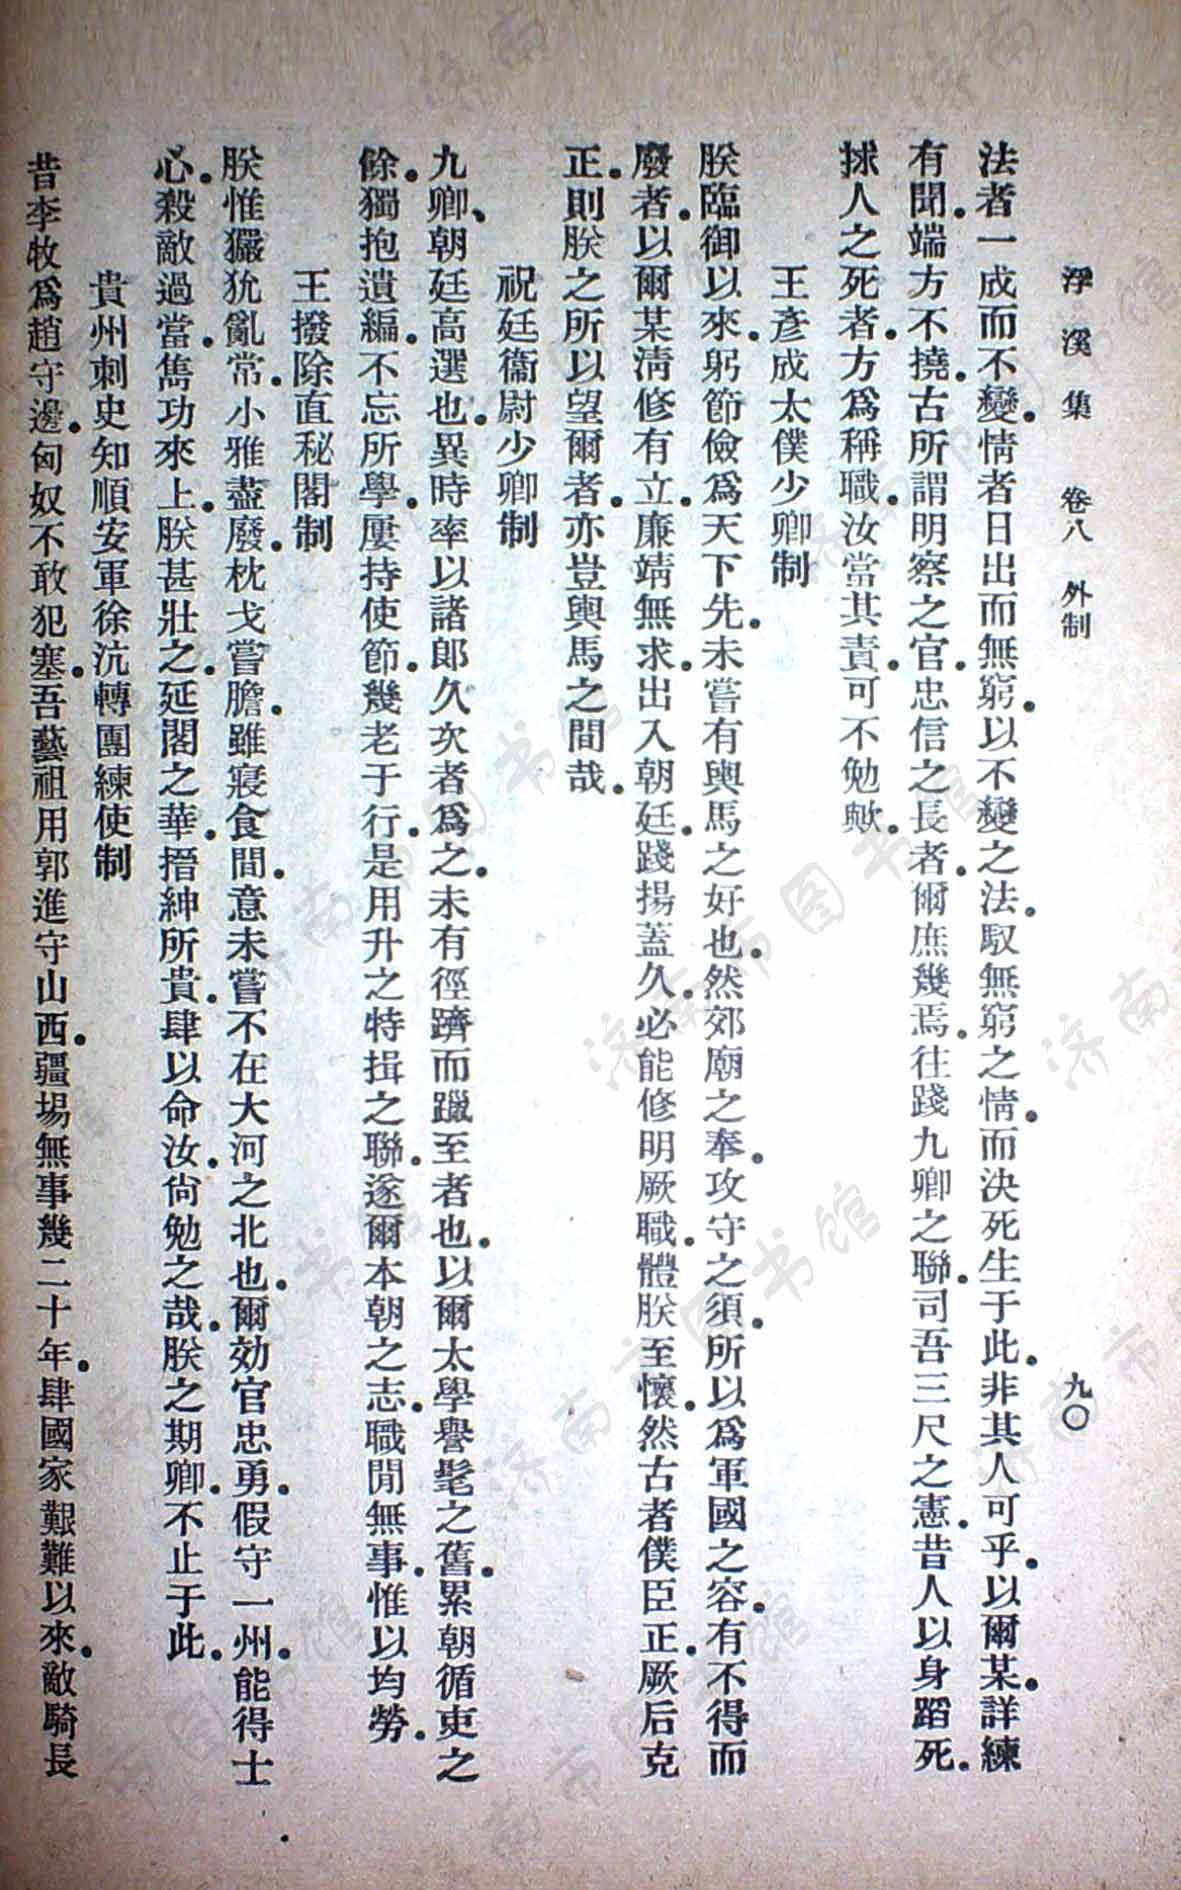 浮溪集 卷八 外制 九〇
法者一成而不變。情者日出而無窮。以不變之法。馭無窮之情。而決死生于此。非其人可乎。以爾某。詳練
有聞。端方不撓。古所謂明察之官。忠信之長者。爾庶幾焉。往踐九卿之聯。司吾三尺之憲。昔人以身蹈死。
捄人之死者。方爲稱職。汝當其責。可不勉歟。
王彥成太僕少卿制
朕臨御以來。躬節儉爲天下先。未嘗有輿馬之好也。然郊廟之奉。攻守之須。所以爲軍國之容。有不得而
廢者。以爾某清修有立。廉靖無求。出入朝廷。踐揚蓋久。必能修明厥職。體朕至懷。然古者僕臣正。厥后克
正。則朕之所以望爾者。亦豈輿馬之間哉。
祝廷衞尉少卿制
九卿、朝廷高選也。異時率以諸郎久次者爲之。未有徑躋而躐至者也。以爾太學譽髦之舊。累朝循吏之
餘。獨抱遺編。不忘所學。屢持使節。幾老于行。是用升之特揖之聯。遂爾本朝之志。職閒無事。惟以均勞。
王撥除直秘閣制
朕惟玁狁亂常。小雅盡廢。枕戈嘗膽。雖寢食間。意未嘗不在大河之北也。爾効官忠勇。假守一州。能得士
心。殺敵過當。雋功來上。朕甚壯之。延閣之華。搢紳所貴。肆以命汝。尙勉之哉。朕之期卿。不止于此。
貴州刺史知順安軍徐沆轉團練使制
昔李牧爲趙守邊。匈奴不敢犯塞。吾藝祖用郭進守山西。疆埸無事幾二十年。肆國家艱難以來。敵騎長
济南市图书馆